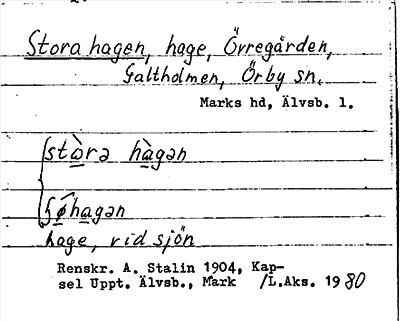 Stora hagen, hage, Övregården,
Galtholmen, Örby sn.
Marks hd, Älvsb. l.
stòrə hàgən
hage, vid sjön
Renskr. A. Stalin 1904, Kap-
sel Uppt. Älvsb., Mark /L.Aks. 1980